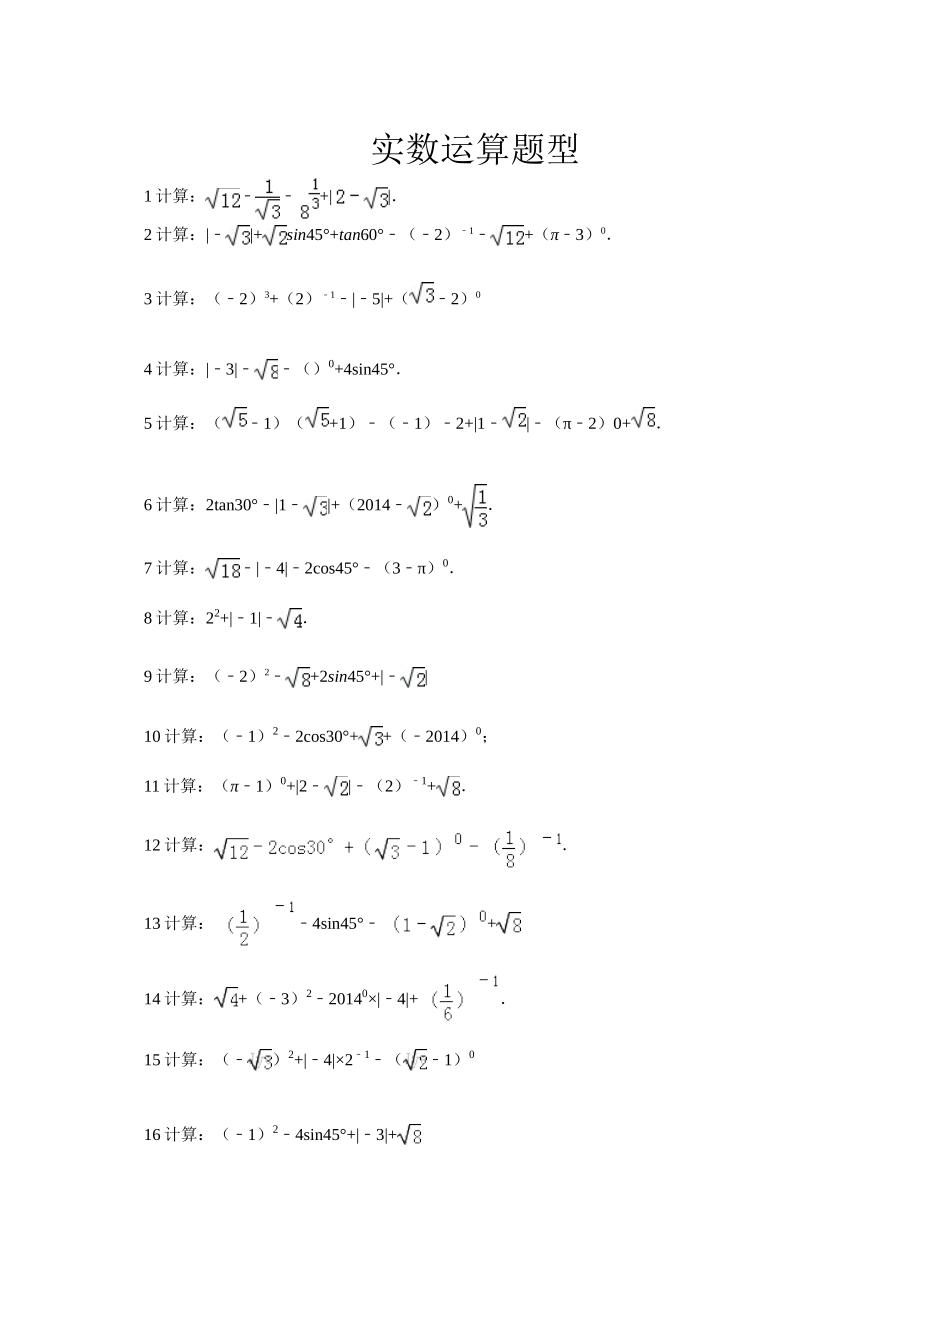 实数运算题型
1 计算：√12﹣1/√3﹣8^(1/3)+|2﹣√3|.
2 计算：|﹣√3|+√2sin45°+tan60°﹣（﹣2）⁻¹﹣√12+（π﹣3）⁰.
3 计算：（﹣2）³+（2）⁻¹﹣|﹣5|+（√3﹣2）⁰
4 计算：|﹣3|﹣√8﹣（）⁰+4sin45°.
5 计算：（√5﹣1）（√5+1）﹣（﹣1）﹣2+|1﹣√2|﹣（π﹣2）0+√8.
6 计算：2tan30°﹣|1﹣√3|+（2014﹣√2）⁰+√(1/3).
7 计算：√18﹣|﹣4|﹣2cos45°﹣（3﹣π）⁰.
8 计算：2²+|﹣1|﹣√4.
9 计算：（﹣2）²﹣√8+2sin45°+|﹣√2|
10 计算：（﹣1）²﹣2cos30°+√3+（﹣2014）⁰；
11 计算：（π﹣1）⁰+|2﹣√2|﹣（2）⁻¹+√8.
12 计算：√12﹣2cos30°+（√3﹣1）⁰﹣（1/8）⁻¹.
13 计算：（1/2）⁻¹﹣4sin45°﹣（1﹣√2）⁰+√8
14 计算：√4+（﹣3）²﹣2014⁰×|﹣4|+（1/6）⁻¹.
15 计算：（﹣√3）²+|﹣4|×2⁻¹﹣（√2﹣1）⁰
16 计算：（﹣1）²﹣4sin45°+|﹣3|+√8